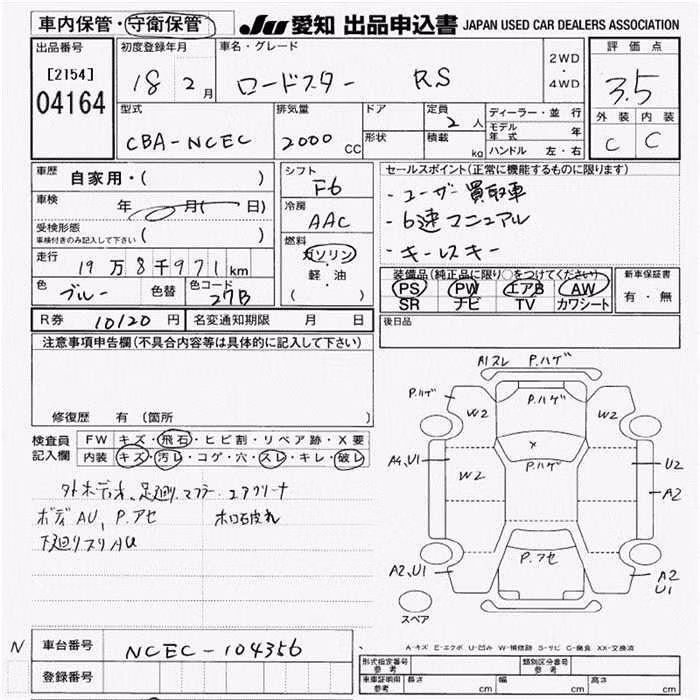 車内保管・守衛保管
JU 愛知 出品申込書 JAPAN USED CAR DEALERS ASSOCIATION
出品番号
[2154]
04164
初度登録年月
18 2月
車名・グレード
ロードスター RS
2WD
・
4WD
評価点
3.5
外装 内装
C C
型式
CBA-NCEC
排気量
2000 CC
ドア
形状
定員
2人
積載
kg
ディーラー・並行
モデル年式 年
ハンドル 左・右
車歴 自家用・( )
車検 年 月( 日)
受検形態
車検付きのみ記入して下さい ( )
走行 19万8千971km
色 ブルー 色替
色コード 27B
シフト
F6
冷房
AAC
燃料
ガソリン
軽・油
( )
セールスポイント(正常に機能するものに限ります)
・ユーザー買取車
・6速マニュアル
・キーレスキー
装備品(純正品に限り○をつけてください)
PS PW エアB AW
SR ナビ TV カワシート
新車保証書
有・無
R券 10120円 名変通知期限 月 日
後日品
注意事項申告欄(不具合内容等は具体的に記入して下さい)
修復歴 有(箇所
検査員
記入欄
FW キズ・飛石・ヒビ割・リペア跡・X要
内装 キズ・汚レ・コゲ・穴・スレ・キレ・破レ
外ホディオ、足廻り、マフラー、エアクリーナ
ボディAU、P.アセ ホロ破れ
下廻りスリAU
A1スレ P.ハゲ
P.ハゲ
W2
P.ハゲ
W2
P.ハゲ
A4、U1
W2
U2
A2
P.アセ
A2、U1
A2
U1
スペア
A-キズ E-エクボ U-凹み W-補修跡 S-サビ C-腐食 XX-交換済
N 車台番号 NCEC-104356
登録番号
形式指定番号
参考
類別区分番号
参考
車庫証明用
参考
長さ cm 幅 cm 高さ cm